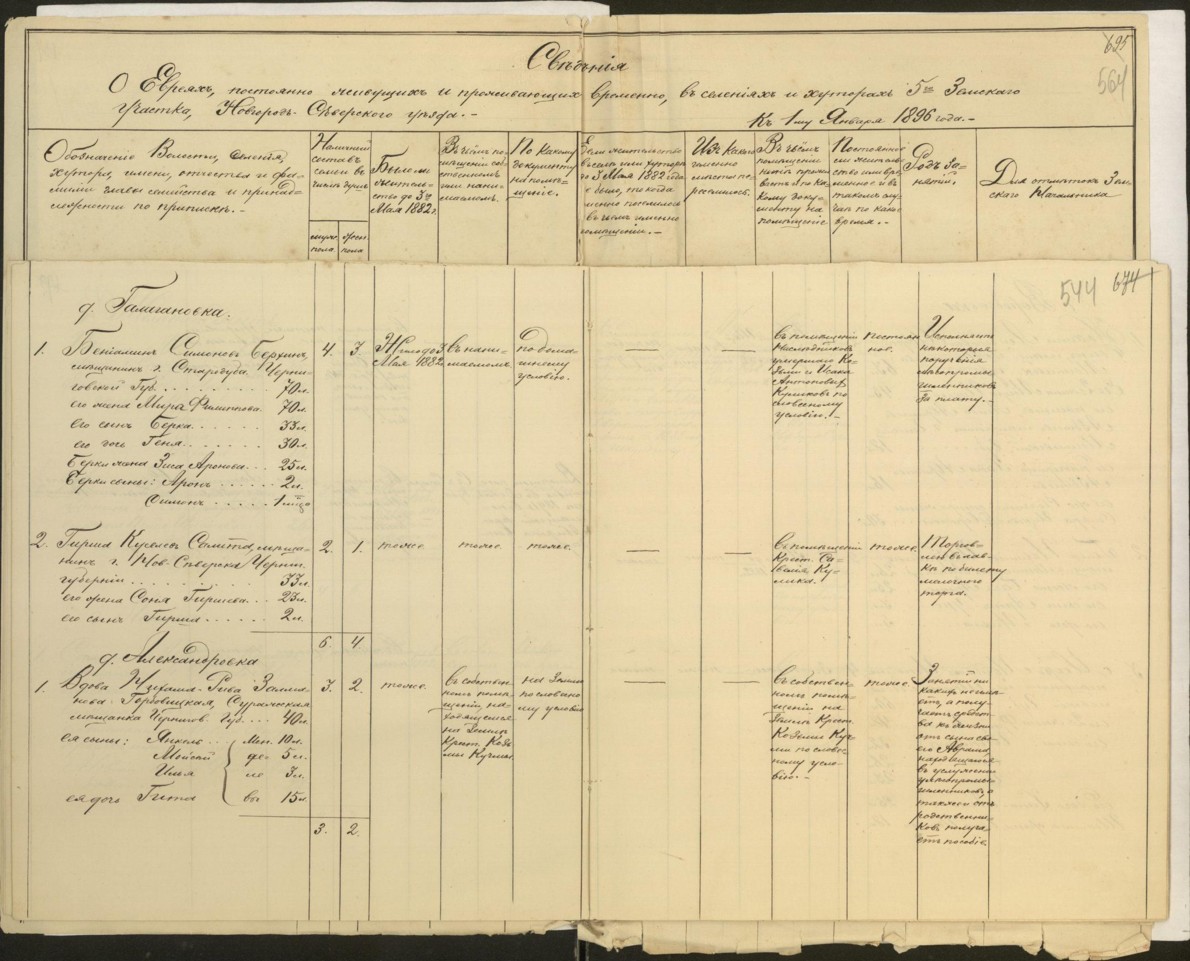 695
564
Свѣдѣнія
О Евреяхъ, постоянно живущихъ и проживающихъ временно, въ селеніяхъ и хуторахъ 5го Земскаго
участка, Новгородъ-Сѣверскаго уѣзда.-
Къ 1му Января 1896 года.-
Обозначеніе Волости, Селенія,
хутора, имени, отчества и фа-
миліи главы семейства и принад-
лежности по припискѣ.-
Наличный
составъ
семьи въ
числѣ душъ
мужс.
пола
женс.
пола
Было ли
житель-
ство до 3го
Мая 1882 г.
Въ чьемъ по-
мѣщеніи соб-
ственномъ
или нани-
маемомъ.
По какому
документу
на помѣ-
щеніе.
Если жительство
въ селѣ или хуторѣ
до 3 Мая 1882 года
не было, то когда
именно поселилось
въ чьемъ именно
помѣщеніи.-
Изъ какого
именно
мѣста пе-
реселилось.
Въ чьемъ
помѣщеніи
нынѣ прожи-
ваетъ и по ка-
кому доку-
менту на
помѣщеніе
Постоянное
ли житель-
ство или вре-
менное и въ
такомъ слу-
чаѣ по како-
время.-
Родъ За-
нятій.
Для отмѣтокъ Зем-
скаго Начальника
544 674
д. Галагановка.
1. Беніаминъ Симоновъ Берхинъ,
мѣщанинъ г. Стародуба Черни-
говской Губ. . . . . . . . 70 л.
его жена Мира Филиппова. 70 л.
его сынъ Берка. . . . . . 33 л.
его дочь Геня. . . . . . 30 л.
Берки жена Зиса Аронова. . . 25 л.
Берки сыны: Аронъ . . . . . . 2 л.
Симонъ . . . . . 1 мца
4. 3.
Жилъ до 3
Мая 1882
въ нани-
маемомъ.
По дома-
шнему
условію.
— —
въ помѣщеніи
наслѣдниковъ
умершаго Ко-
зьмы и Исака
Антоновыхъ
Куликовъ по
словесному
условію.-
постоян-
ное.
Исполняетъ
нѣкоторыя
порученія
лѣсопромы-
шленниковъ
за плату.-
2. Гирша Куселевъ Самитъ, мѣща-
нинъ г. Нов.-Сѣверска Черниг.
губерніи . . . . . . . . 33 л.
его жена Соня Гиршева. . . 23 л.
его сынъ Гирша . . . . . . 2 л.
2. 1.
тоже. тоже. тоже.
— —
въ помѣщеніи
Крест. Са-
велія Ку-
лика.
тоже.
Торгов-
лей въ лав-
кѣ по билету
мелочного
торга.
6. 4.
д. Александровка
1. Вдова
Горбовицкая, Суражская
мѣщанка Чернигов. Губ. . . . 40 л.
ея сыны: Янкель. . Мен. 10 л.
Мойсей 5 л.
3 л.
ея дочь Гита 15 л.
3. 2.
тоже.
въ собствен-
номъ помѣ-
щеніи на-
ходящемся
на Землѣ
Крест. Козь-
мы
на Землю
по словесно-
му условію
— —
въ собствен-
номъ помѣ-
щеніи на
Землѣ Крест.
Козьмы
по словес-
ному усло-
вію.-
тоже.
Занятій ни-
какихъ не имѣ-
етъ, а полу-
чаетъ средст-
ва къ жизни
отъ сына сво-
его Абрама,
находящагося
въ услуженіи
у лѣсопромы-
шленниковъ, а
также и отъ
родственни-
ковъ получа-
етъ пособіе.
3. 2.